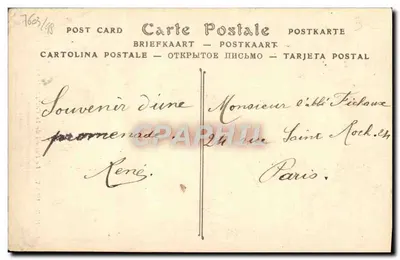 7603/98
POST CARD Carte Postale POSTKARTE
BRIEFKAART — POSTKAART
CARTOLINA POSTALE — ОТКРЫТОЕ ПИСЬМО — TARJETA POSTAL
Souvenir d'une
promenade.
René.
Monsieur l'abbé Fichaux
24 rue Saint Roch. 24
Paris.